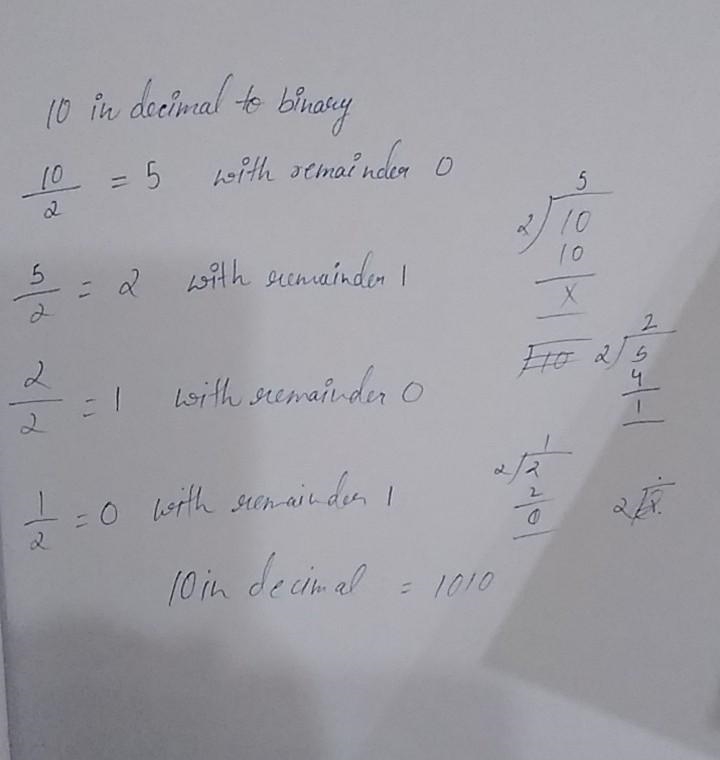 10 in decimal to binary
10/2 = 5 with remainder 0
5/2 = 2 with remainder 1
2/2 = 1 with remainder 0
1/2 = 0 with remainder 1
10 in decimal = 1010
5
2 10
10
x
2
2 5
4
1
1
2 2
2
0